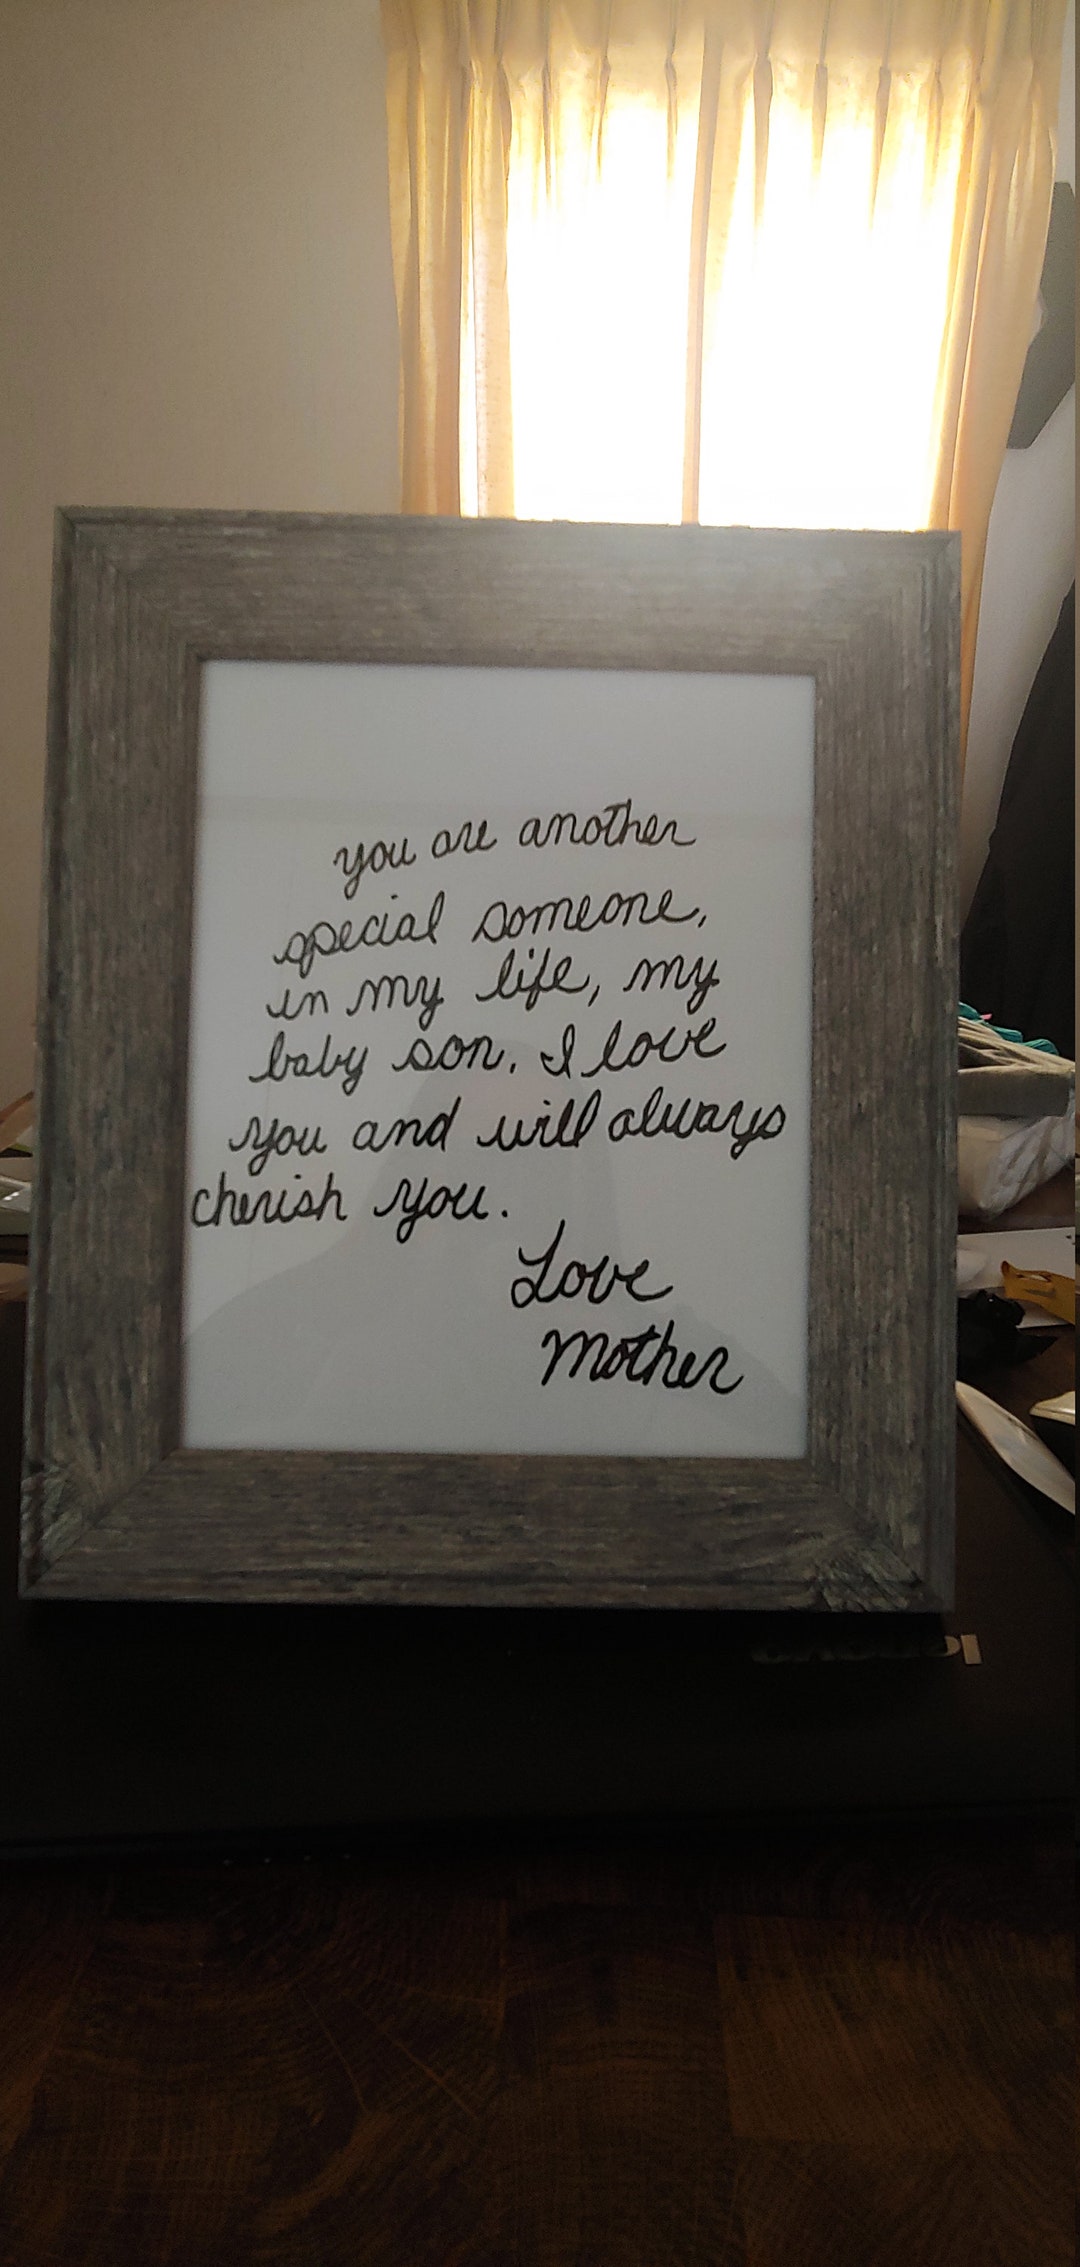 you are another
special someone,
in my life, my
baby son. I love
you and will always
cherish you.
Love
Mother